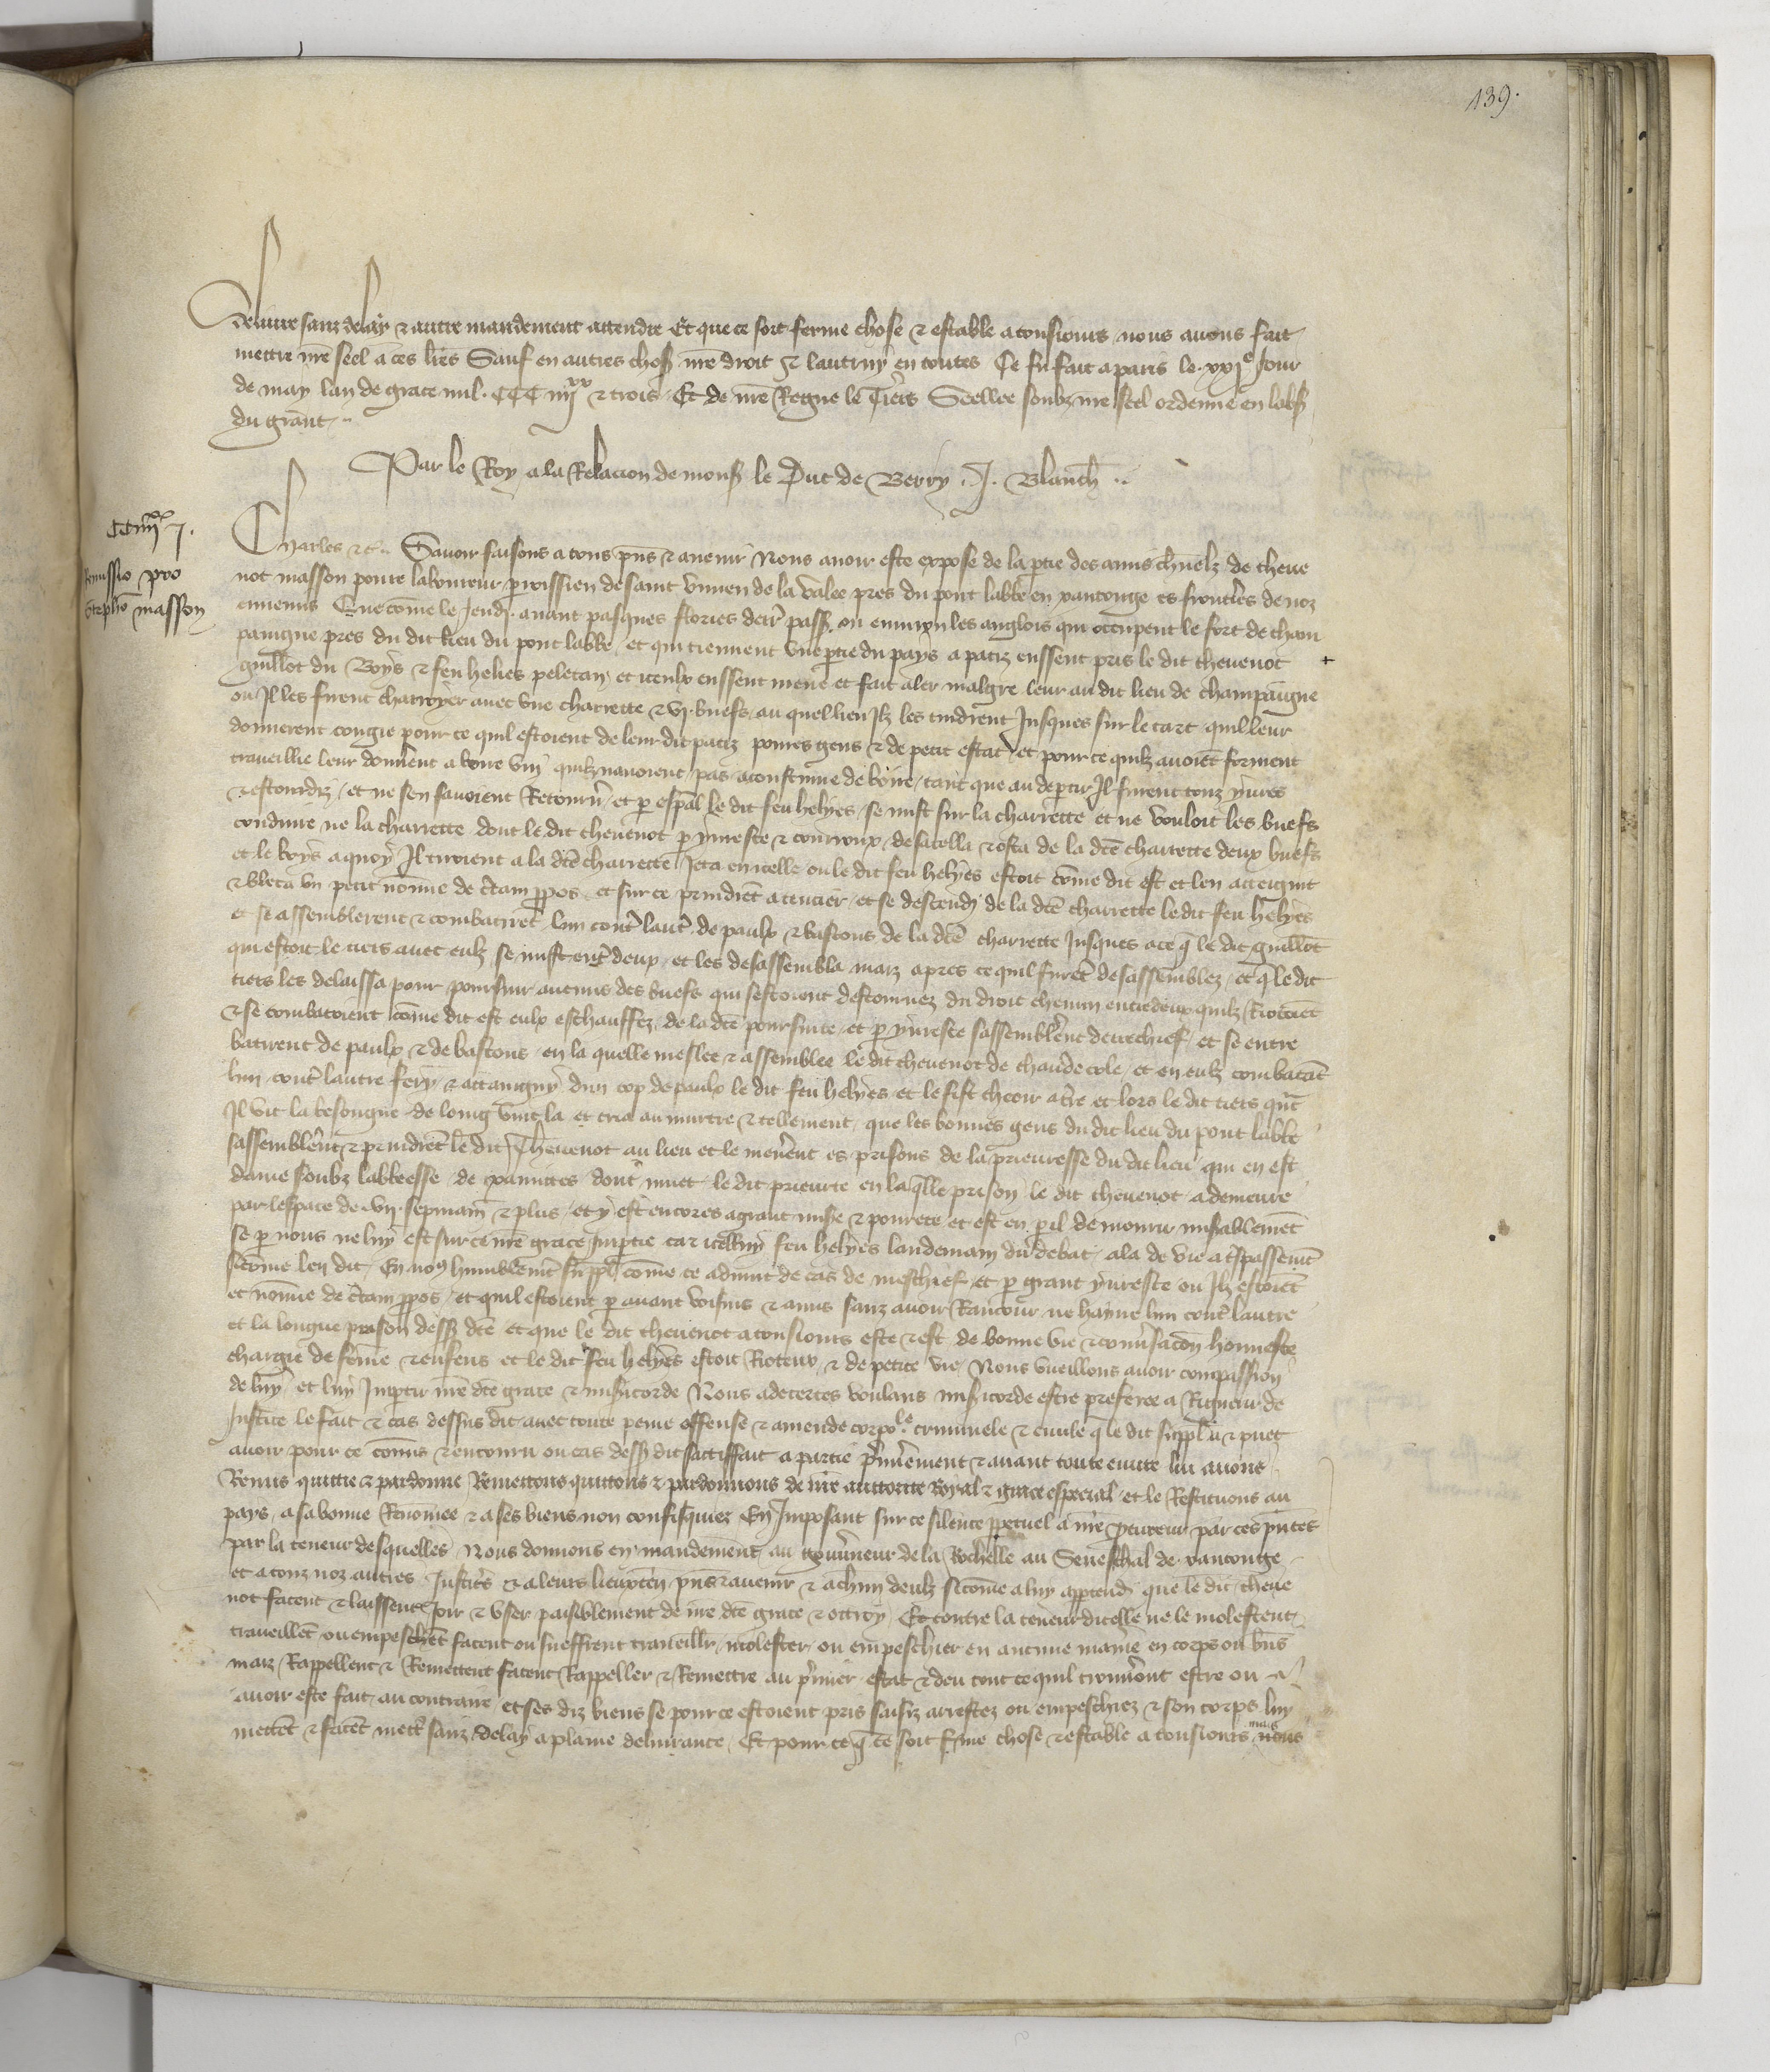 139.
deliure sanz delay & autre mandement attendre Et que ce soit ferme chose & estable a tousiours nous auons fait
mettre nre seel a ces lres Sauf en autres choses nre droit & lautruy en toutes Ce fu fait a paris le xxj^e Jour
de may lan de grace mil CCC iiij^xx & trois Et de nre Regne le Tiers Seellee soubz nre seel ordenne en labsence
du grant ..
Par le Roy a la Relacion de mons le Duc de Berry . J . Blanch ..
CC iiij^xx j.
Remissio pro
Stepho masson
Charles &c .. Sauoir faisons a tous pns & auenir Nous auoir este expose de la ptie des amis charnelz de theue
not masson poure laboureur proissien de saint viuien de la valee pres du pont labbe en xantonge es frontieres de noz
ennemis Que come le Jeudi auant pasques flories derr passe ou enuiron les anglois qui occupent le fort de cham
paigne pres du dit lieu du pont labbe et qui tiennent vne ptie du pays a patiz eussent pris le dit theuenot
guillot du Boys & feu helies peletan et iceulx eussent mene et fait aler malgre leur au dit lieu de champaigne
ou Il les firent charroyer auec vne charrette & vj buefs au quel lieu Ilz les tindrent Jusques sur le tart quil leur
donnerent congie pour ce quil estoient de leur dit patiz poures gens & de petit estat et pour ce quilz auoiet forment
traueillie leur donneret a boire vin quilz nauoient pas acoustume de boire tant que au deptir Il furent touz yures
& estourdiz et ne sen sauoient Retourn et p espal le dit feu helyes se mist sur la charrette et ne vouloit les buefs
conduire ne la charrette dont le dit theuenot p yuresce & courroux desatella & osta de la dte charrette deux buefs
et le boys a quoy Il tiroient a la dte charrette Jeta en icelle ou le dit feu helyes estoit come dit est et len atteignit
& bleca vn petit nonme de certain ppos et sur ce prindret a tencier et se descendi de la dte charrette le dit feu helyes
et se assemblerent & combatiret lun contre lautre de paulx & bastons de la dte charrette Jusques a ce q le dit guillot
qui estoit le tiers auec eulx se mist entre deux et les desassembla maiz apres ce quil furet desassemblez et q le dit
tiers les delaissa pour poursuir aucuns des buefs qui sestoient destournez du droit chemin entredeux quilz Riotoiet
& se combatoient come dit est eulx eschauffez de la dte poursuite et p yuresce sassemblerent derechief et se entre
batirent de paulx & de bastons en la quelle meslee & assemblee le dit theuenot de chaude cole et en eulx combatat
lun contre lautre fery & attaigny dun cop de paulx le dit feu helyes et le fist cheoir a tre et lors le dit tiers qut
Il vit la besongne de loing vint la et cria au murtre & tellement que les bonnes gens du dit lieu du pont labbe
sassemblerent & prindret le dit Theuenot au lieu et le meneret es prisons de la prieuresse du dit lieu qui en est
dame soubz labbeesse de xainttes dont muet le dit prieurte en laqlle prison le dit theuenot a demeure
par lespace de vij sepmaines & plus et y est encores a grant misere & pourete et est en pil de mourir misablemet
se p nous ne luy est sur ce nre grace Impartie car icelluy feu helyes landemain du debat ala de vie a tspassemet
sicome len dit En nous humblemet suppliant come ce aduint de cas de meschief et p grant yuresce ou Ilz estoiet
et nonme de certain ppos et quil estoient p auant voisins & amis sanz auoir Rancour ne hayne lun contre lautre
et la longue prison dessus dte et que le dit theuenot a tousiours este & est de bonne vie & conuersacon honneste
chargie de feme & enfens et le dit feu helyes estoit Rioteux & de petite vie Nous vueillons auoir compassion
de luy et luy Impartir nre dte grace & misericorde Nous adecertes voulans misericorde estre preferee a Rigueur de
Justice le fait & cas dessus dit auec toute peine offense & amende corporele criminele & ciuile q le dit suppliant a & puet
auoir pour ce comis & encouru ou cas dessus dit satisffait a partie premierement & auant toute euure lui auons
Remis quittie & pardonne Remettons quittons & pardonnons de nre auttorite Royal & grace especial et le Restituons au
pays a sa bonne Renomee & a ses biens non confisquiez En Imposant sur ce silence ppetuel a nre procureur par ces pntes
par la teneur desquelles Nous donnons en mandement au gouuerneur de la Rochelle au Seneschal de xantonge
et a touz noz autres Justiciers & a leurs lieuxten pns & auenir & a chun deulx sicome a luy apptendra que le dit theue
not facent & laissent Joir & vser paisiblement de nre dte grace & ottroy Et contre la teneur dicelle ne le molestent
traueillet ou empeschet facent ou sueffrent traueillier molester ou empeschier en aucune maniere en corps ou biens
maiz Rappellent & Remettent facent Rappeller & Remettre au premier estat & deu tout ce quil trouueront estre ou
auoir este fait au contraire et ses diz biens se pour ce estoient pris saisiz arrestez ou empeschiez & son corps luy
mettet & facet mettre sanz delay a plaine deliurance Et pour ce q ce soit ferme chose & estable a tousiours mais nous